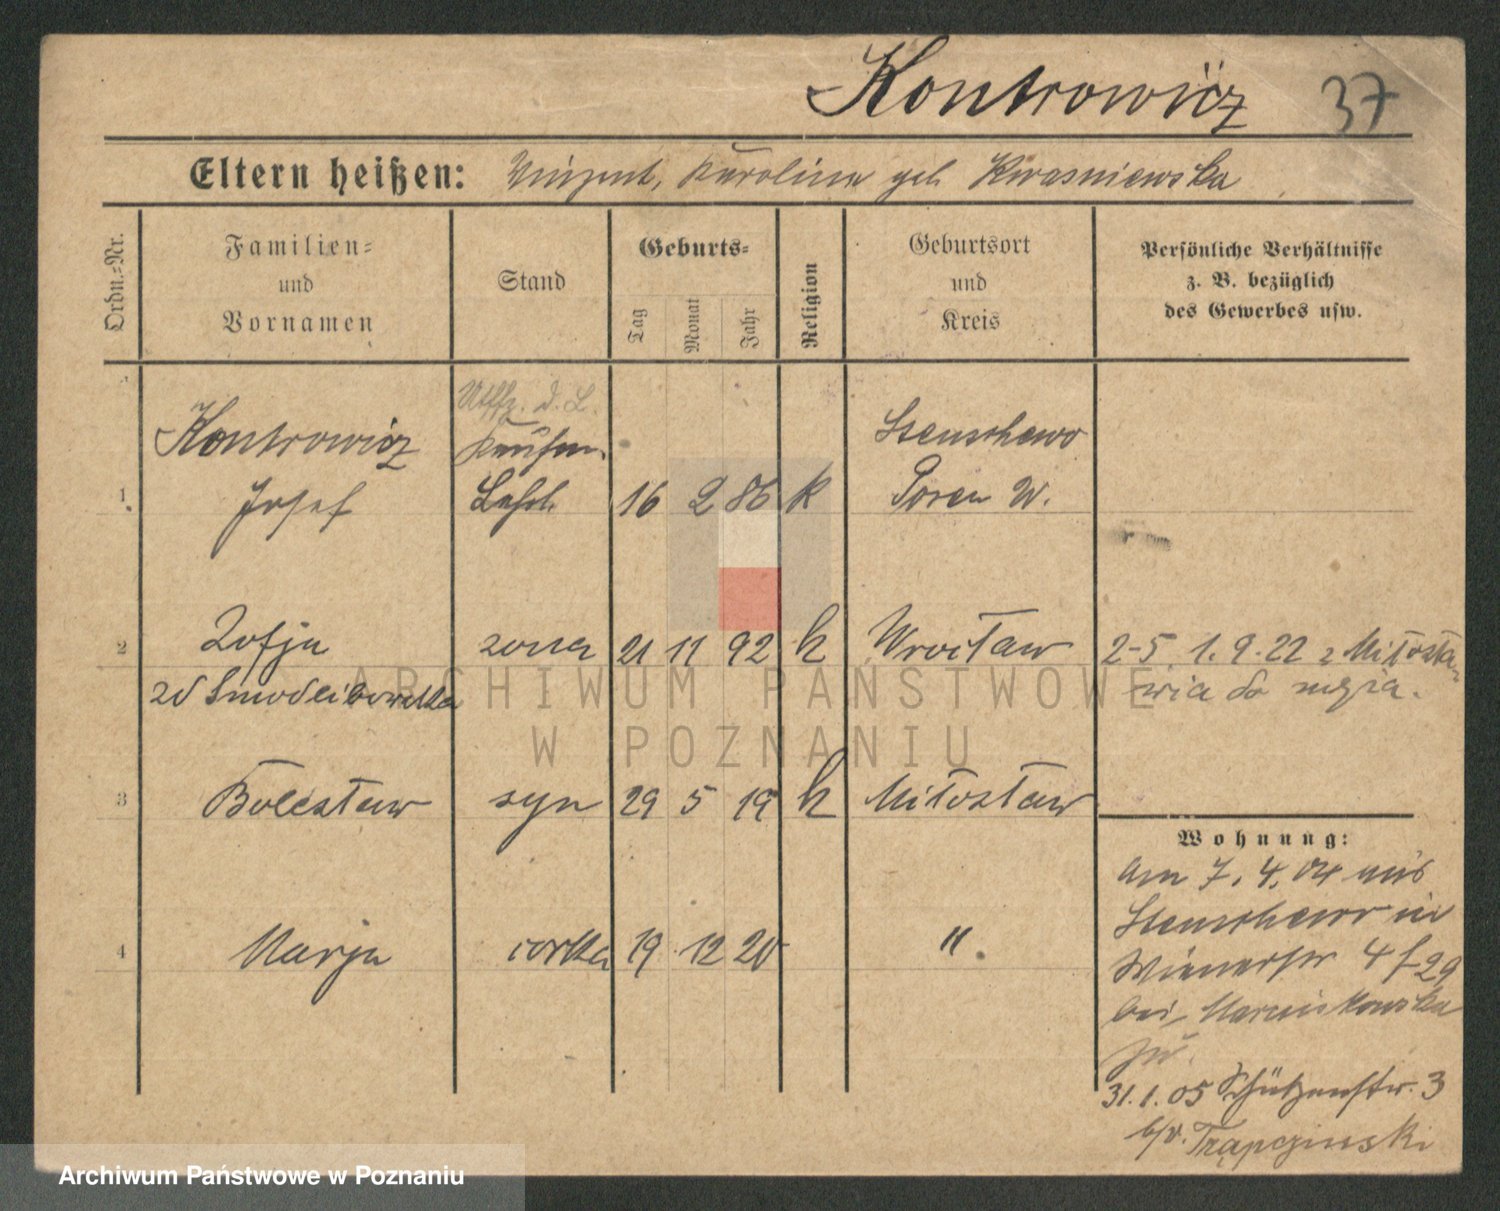 Kontrowicz 37
Eltern heißen: Vinzent, Karolina geb. Kwasniewska
Ordn.-Nr.
Familien-
und
Vornamen
Stand
Geburts-
Tag
Monat
Jahr
Religion
Geburtsort
und
Kreis
Persönliche Verhältnisse
z. B. bezüglich
des Gewerbes usw.
Uffz. d. L.
Kontrowicz Kaufm. Stenschewo
1. Josef Lehrl. 16 2 86 k Posen W.
2 Zofja żona 21 11 92 k Wrocław 2-5 1.9.22 z Miłosła-
zd Smodlibowska wia do męża.
3 Bolesław syn 29 5 19 k Miłosław
4 Marja córka 19 12 20 "
Wohnung:
Am 7.4.04 aus
Stenschewo in
Wienerstr 4
bei Marciszkowska
zu.
31.1.05 Schützenstr. 3
b/v. Trąpczinski
ARCHIWUM PAŃSTWOWE
W POZNANIU
Archiwum Państwowe w Poznaniu